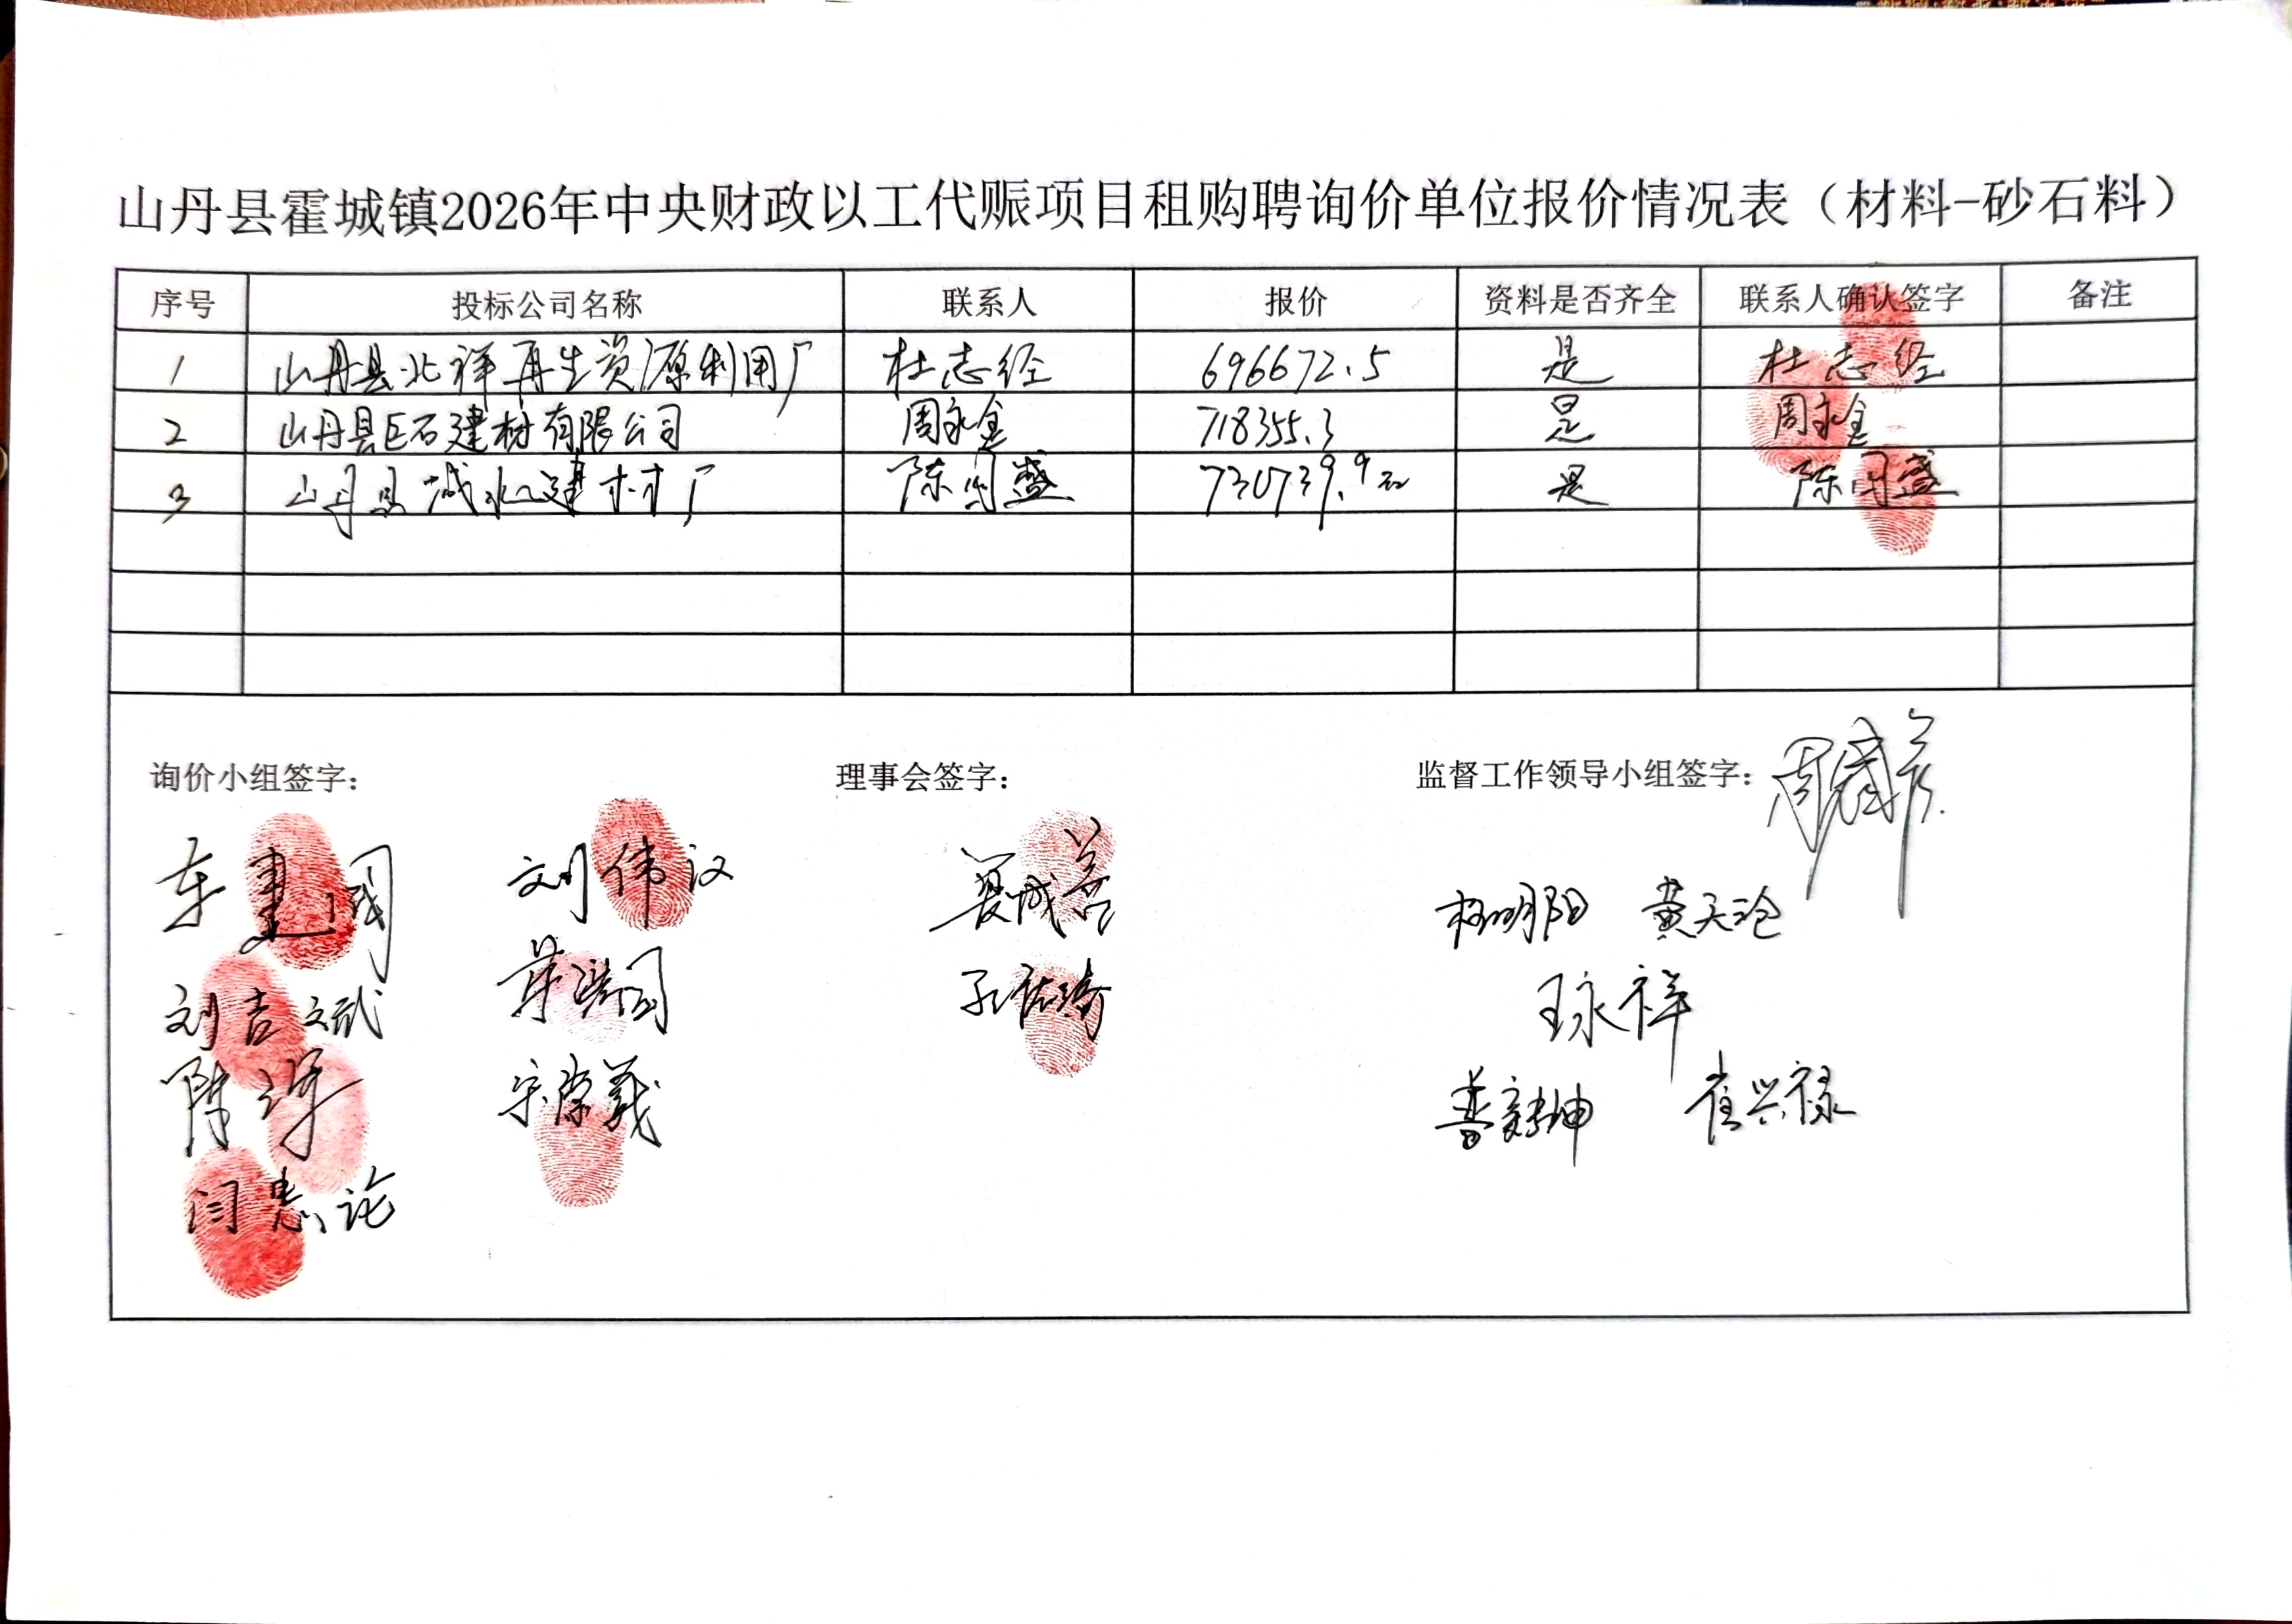 山丹县霍城镇2026年中央财政以工代赈项目租购聘询价单位报价情况表（材料-砂石料）
序号 投标公司名称 联系人 报价 资料是否齐全 联系人确认签字 备注
1 山丹县北祥再生资源利用厂 杜志经 696672.5 是 杜志经
2 山丹县巨石建材有限公司 周永金 718355.3 是 周永金
3 山丹县城北建材厂 陈国盛 730739.9元 是 陈国盛
询价小组签字： 理事会签字： 监督工作领导小组签字：
车建国 刘伟汉
杨明阳 黄天沧
刘吉斌
王永祥
宋崇义
崔兴禄
闫惠论